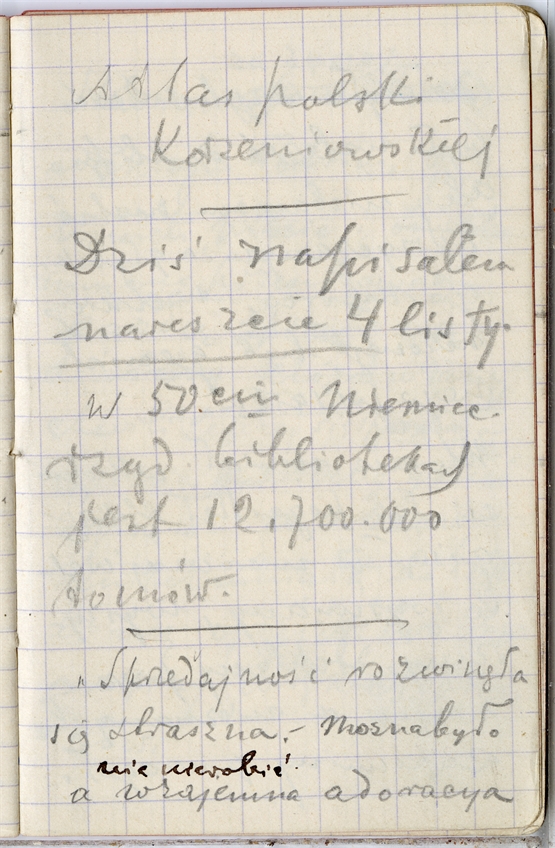 Atlas polski
Korzeniowskiej
Dziś napisałem
nareszcie 4 listy.
w 50.ciu Niemiec.
rząd. bibliotekach
jest 12.700.000
tomów.
"Sprzedajność rozwinęła
się straszna, - można było
nic nierobić
a wzajemna adoracya